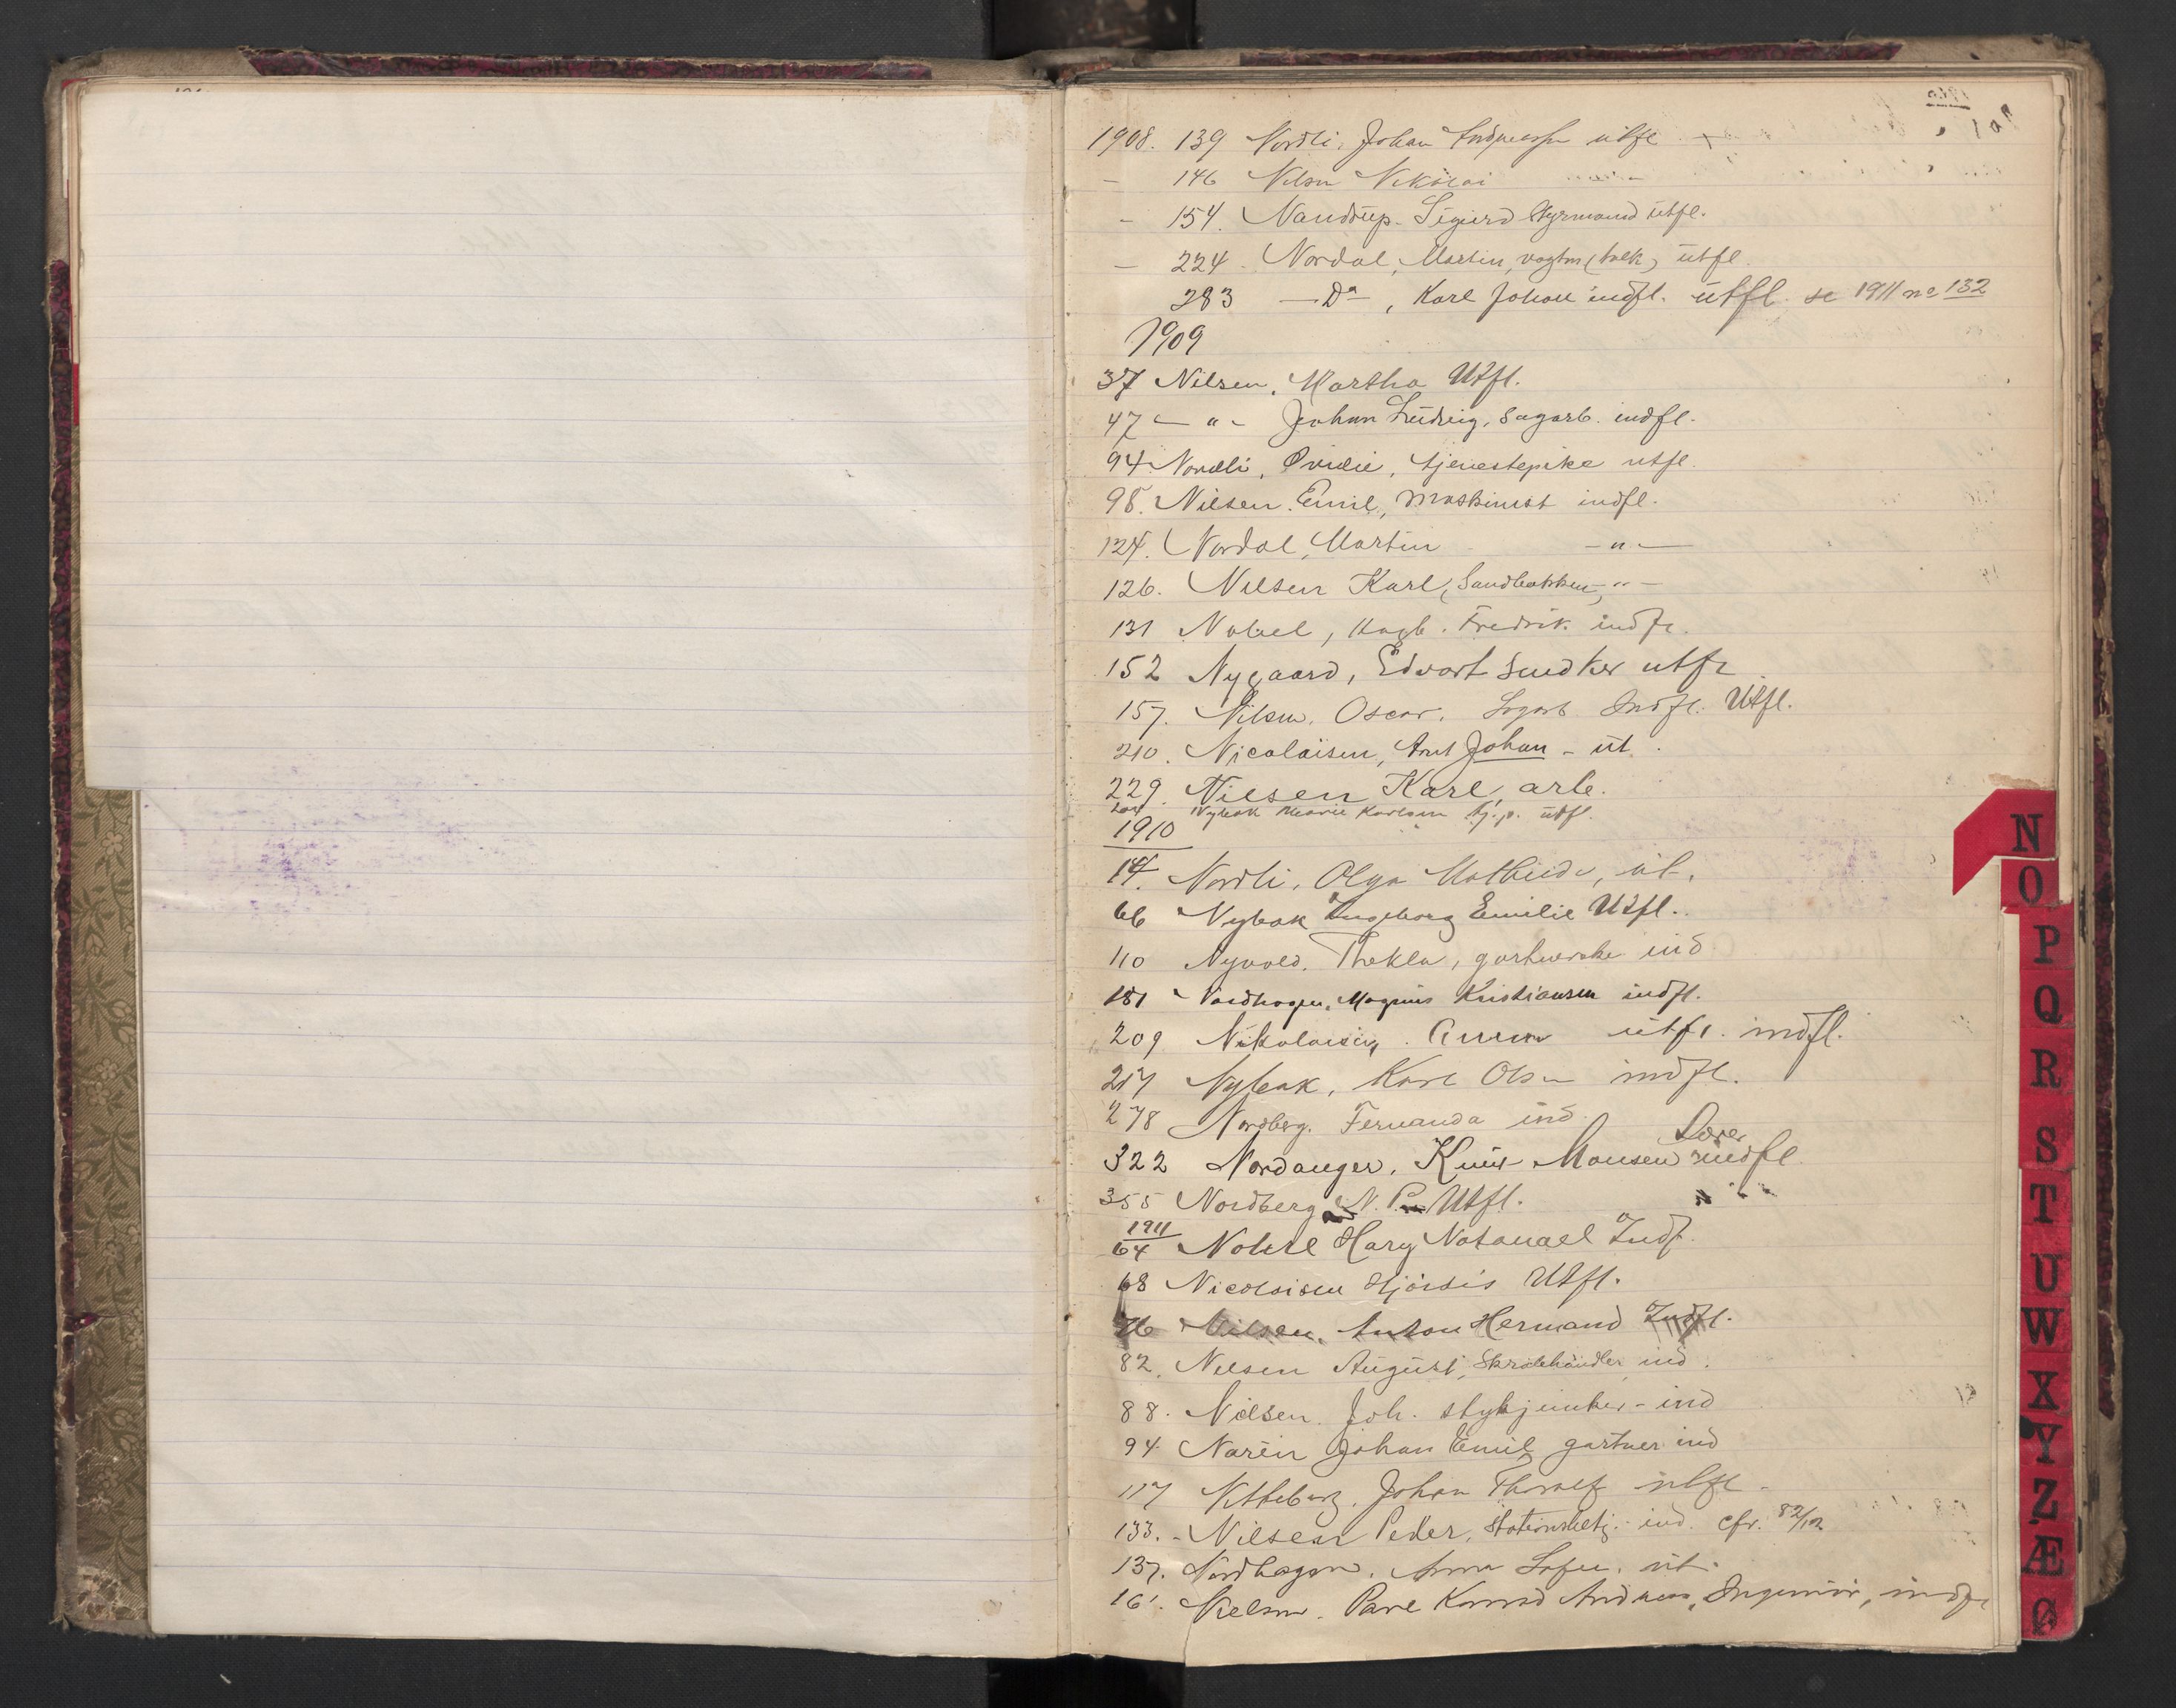 1908. 139 Nordli, Johan Andreassen utfl
- 146 Nilsen Nikolai -"-
- 154. Nandrup. Sigurd Styrmand utfl.
- 224 Nordal, Martin, vogtm (bek) utfl
283 -Do-, Karl Johan indfl. utfl. se 1911 no 132
1909
37 Nilsen, Martha Utfl.
47 -"- Johan Ludvig, sagarb. indfl.
94 Nordli, Ovidie, tjenestepike utfl.
98. Nilsen. Emil, Maskinist indfl.
124. Nordal, Martin -"-
126. Nilsen Karl, (Sandbakken) -"-
131 Nobel, Fredrik. indfl.
152 Nygaard, Edvart Snedker utfl
157. Nilsen, Oscar. Sagarb Indfl. Utfl.
210. Nicolaisen, Arnt Johan - ut.
229. Nilsen Karl, arb.
Nybak Marie Karlsen tj.p. utfl.
1910
14. Nordli, Olga Mathilde, ut.
66 Nybak Ingeborg Emilie Utfl.
110 Nyvold. Thekla, gartnerske ind
181 Nordhagen, Magnus Kristiansen indfl.
209 Nikolaisen. utfl. indfl.
217 Nybak, Karl Olsen indfl.
278 Nordberg. Fernanda ind.
Lærer
322 Nordanger, Knut Monsen indfl.
355 Nordberg N. P. Utfl.
1911
64 Nobel Hary Natanael Indf.
68 Nicolaisen Hjørdis Utfl.
76 Nilsen, Anton Hermand Indfl.
82. Nilsen August, Skræthandler ind.
88. Nilsen. Joh. stykjunker - ind
94 Narén Johan Emil gartner ind
117 Johan Thoralf utfl
133. - Nilsen Peder, Stationsbetj. ind. cfr. 82/12
137. Nordhagen. Anna Sofie. ut.
161. Nielsen. Paul Konrad Andreas, Ingeniør, indfl
N
O
P
Q
R
S
T
U
W
X
Y
Z
Æ
Ø